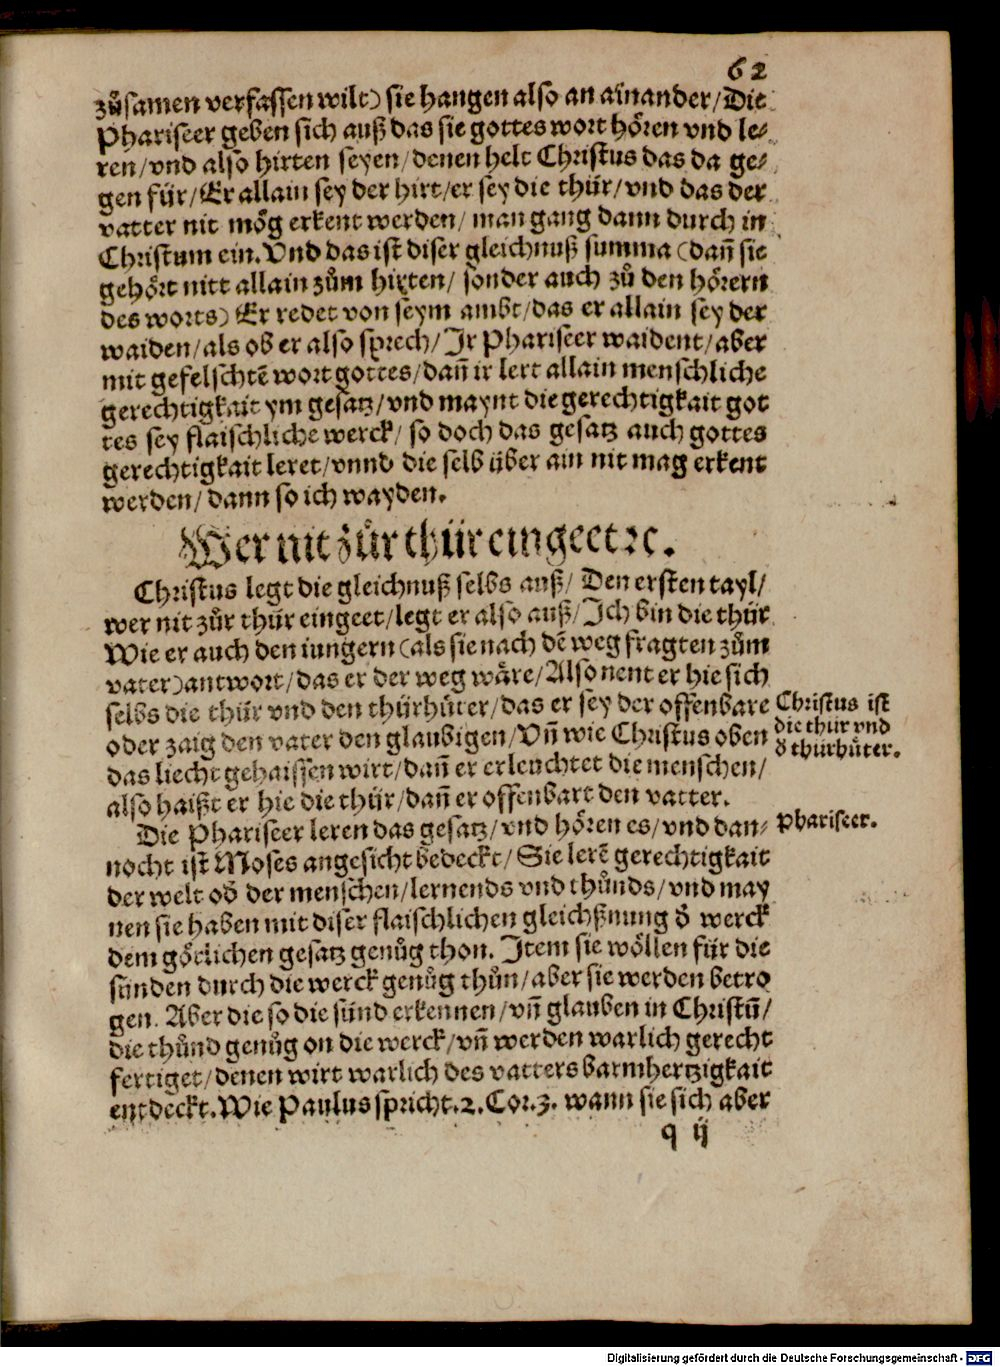 62
zůsamen verfassen wilt) sie hangen also an ainander/Die
Phariseer geben sich auß das sie gottes wort hören vnd le⸗
ren/vnd also hirten seyen/denen helt Christus das da ge⸗
gen für/Er allain sey der hirt/er sey die thür/vnd das der
vatter nit mög erkent werden/man gang dann durch in
Christum ein. Vnd das ist diser gleichnuß summa (dañ sie
gehört nitt allain zům hirten/ sonder auch zů den hörern
des worts) Er redet von seym ambt/das er allain sey der
waiden/als ob er also sprech/Ir Phariseer waident/aber
mit gefelschtē wort gottes/dañ ir lert allain menschliche
gerechtigkait ym gesatz/vnd maynt die gerechtigkait got
tes sey flaischliche werck/ so doch das gesatz auch gottes
gerechtigkait leret/vnnd die selb über ain nit mag erkent
werden/dann so ich wayden.
Wer nit zůr thür eingeet ꝛc.
Christus legt die gleichnuß selbs auß/ Den ersten tayl/
wer nit zůr thür eingeet/legt er also auß/Ich bin die thür
Wie er auch den iungern (als sie nach dē weg fragten zům
vater) antwort/das er der weg wäre/Also nent er hie sich
selbs die thür vnd den thürhüter/das er sey der offenbare
oder zaig den vater den glaubigen/Vñ wie Christus oben
das liecht gehaissen wirt/dañ er erleuchtet die menschen/
also haißt er hie die thür/dañ er offenbart den vatter.
Christus ist
die thür vnd
ď thürhüter.
Die Phariseer leren das gesatz/vnd hören es/vnd dan⸗
nocht ist Moses angesicht bedeckt/ Sie lerē gerechtigkait
der welt oď der menschen/lernends vnd thůnds/vnd may
nen sie haben mit diser flaischlichen gleichßnung ď werck
dem götlichen gesatz genůg thon. Item sie wöllen für die
sünden durch die werck genůg thůn/aber sie werden betro
gen. Aber die so die sünd erkennen/vñ glauben in Christū/
die thůnd genůg on die werck/vñ werden warlich gerecht
fertiget/denen wirt warlich des vatters barmhertzigkait
entdeckt. Wie Paulus spricht.2.Cor.3. wann sie sich aber
Phariseer.
q ij
Digitalisierung gefördert durch die Deutsche Forschungsgemeinschaft - DFG